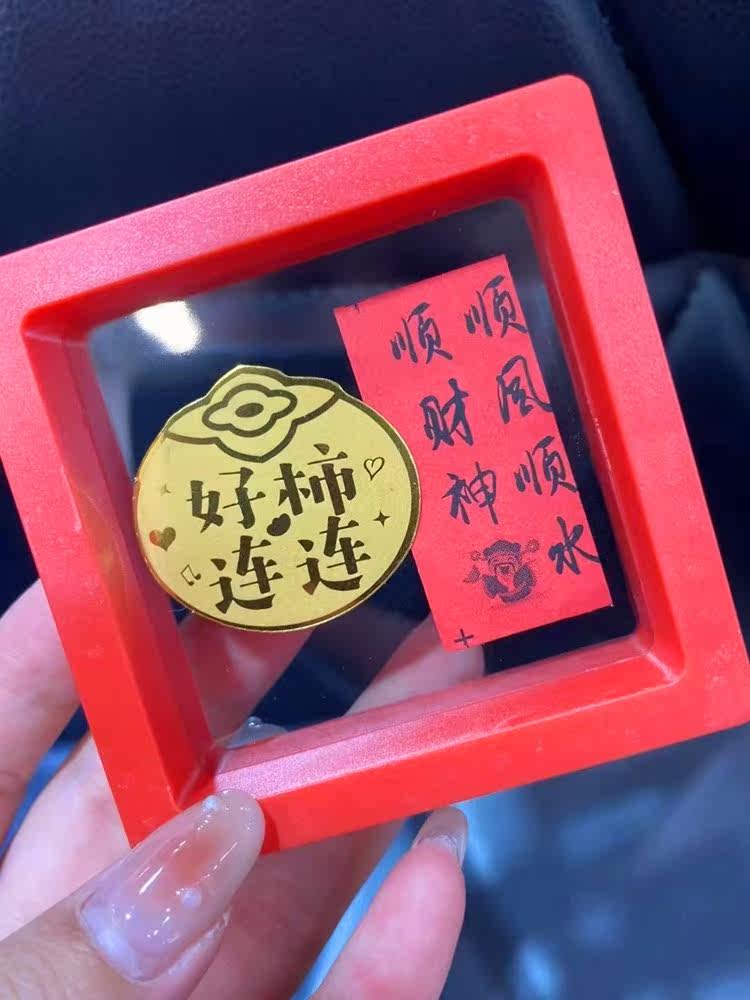 好柿
连连
顺风顺水
顺财神